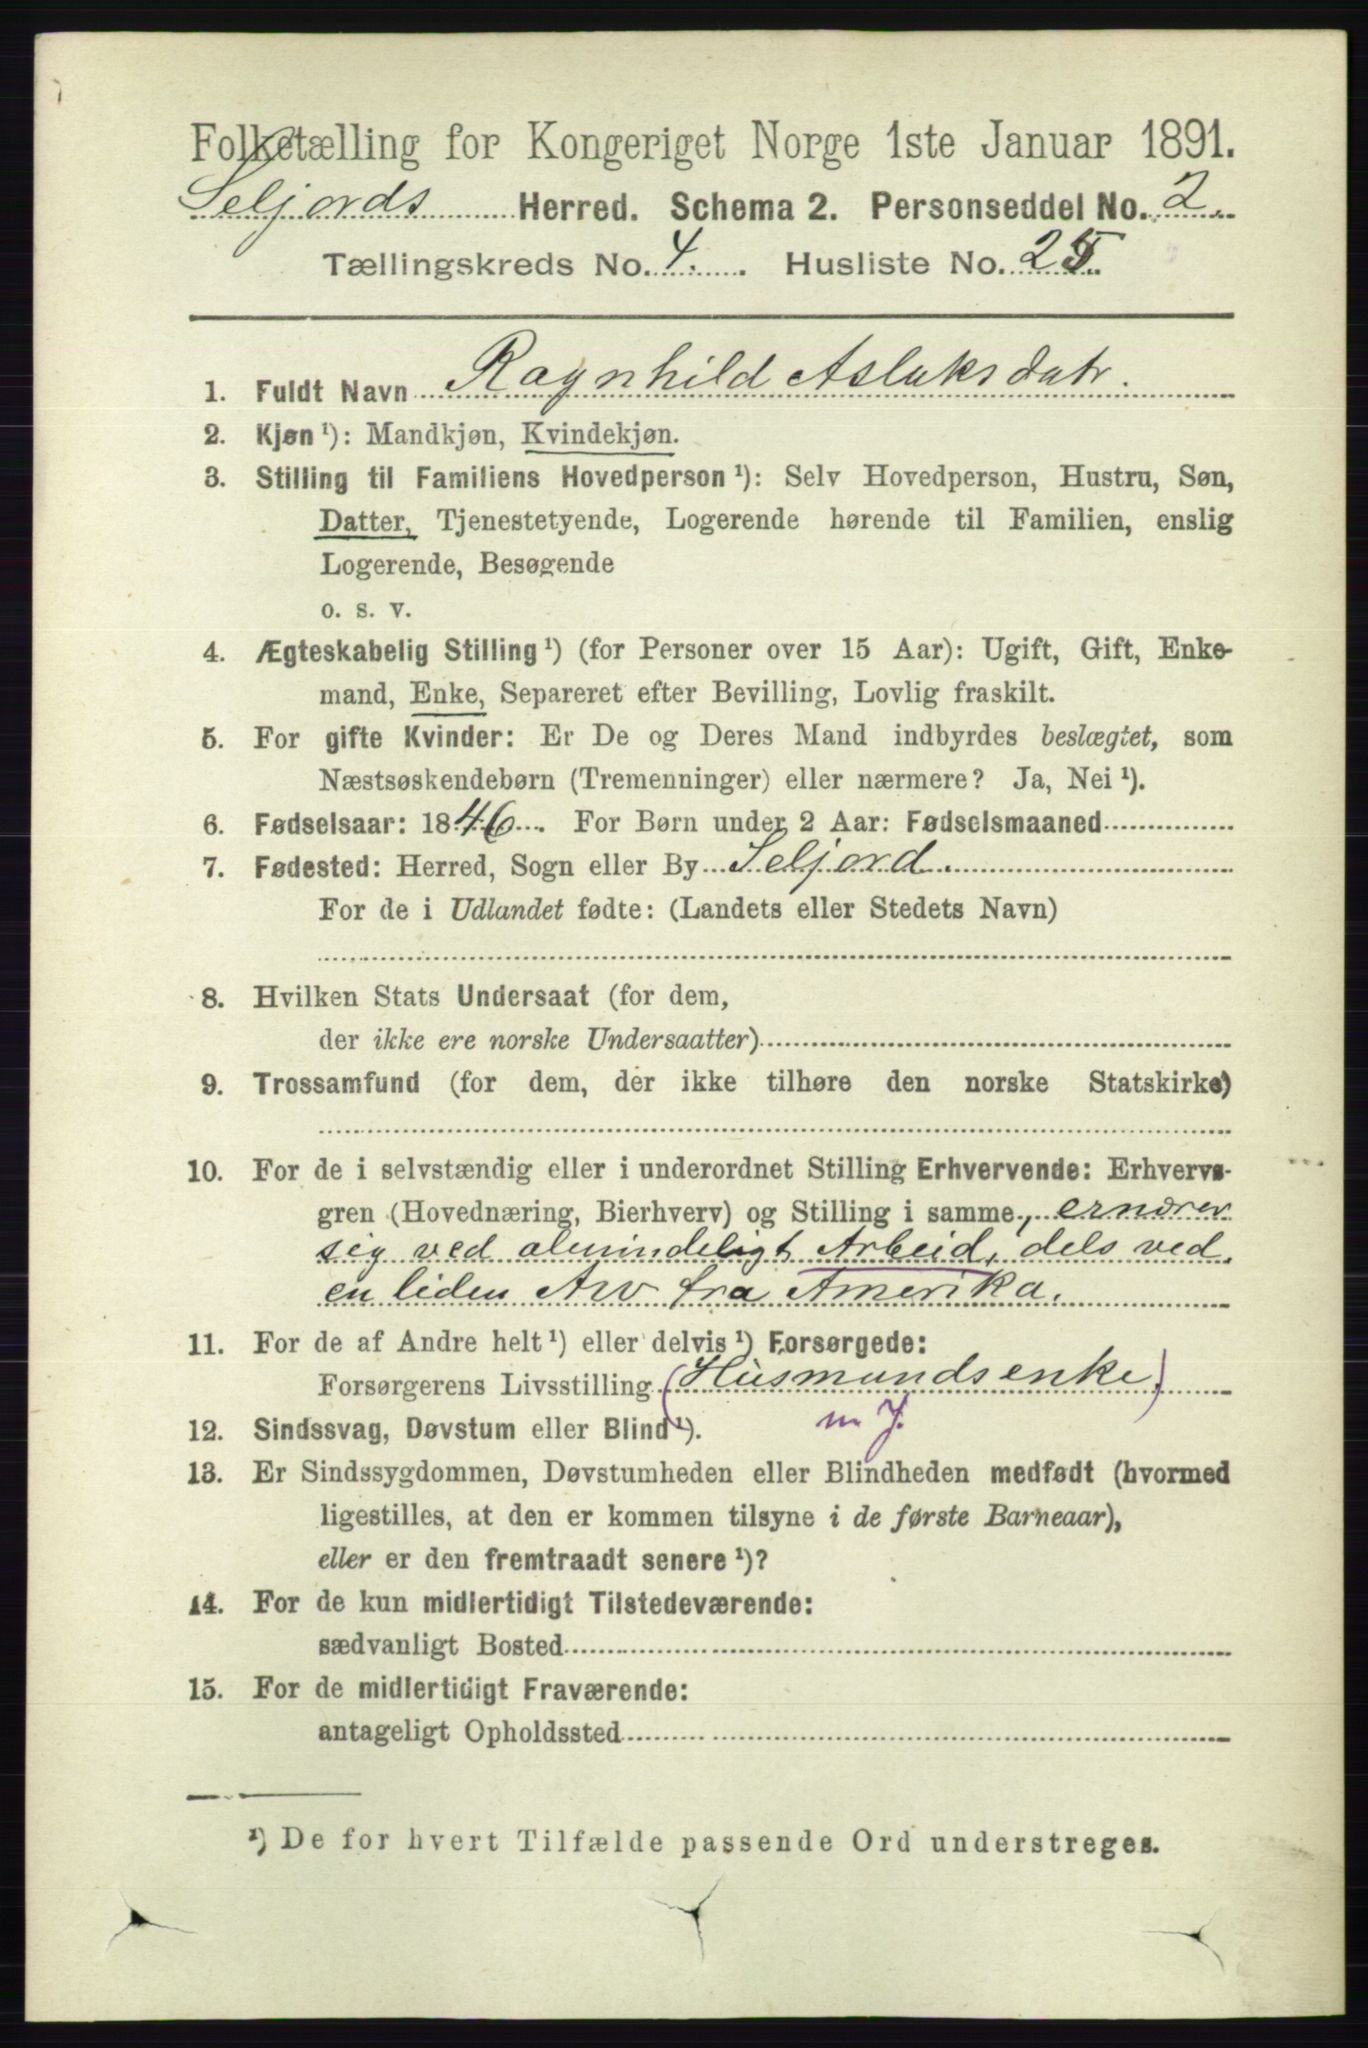 Folketælling for Kongeriget Norge 1ste Januar 1891.
Seljords Herred. Schema 2. Personseddel No. 2.
Tællingskreds No. 4. Husliste No. 25.
1. Fuldt Navn Ragnhild Aslaksdatr.
2. Kjøn ¹): Mandkjøn, Kvindekjøn.
3. Stilling til Familiens Hovedperson ¹): Selv Hovedperson, Hustru, Søn,
Datter, Tjenestetyende, Logerende hørende til Familien, enslig
Logerende, Besøgende
o. s. v.
4. Ægteskabelig Stilling ¹) (for Personer over 15 Aar): Ugift, Gift, Enke-
mand, Enke, Separeret efter Bevilling, Lovlig fraskilt.
5. For gifte Kvinder: Er De og Deres Mand indbyrdes beslægtet, som
Næstsøskendebørn (Tremenninger) eller nærmere? Ja, Nei ¹).
6. Fødselsaar: 1846. For Børn under 2 Aar: Fødselsmaaned
7. Fødested: Herred, Sogn eller By Seljord.
For de i Udlandet fødte: (Landets eller Stedets Navn)
8. Hvilken Stats Undersaat (for dem,
der ikke ere norske Undersaatter)
9. Trossamfund (for dem, der ikke tilhøre den norske Statskirke)
10. For de i selvstændig eller i underordnet Stilling Erhvervende: Erhvervs-
gren (Hovednæring, Bierhverv) og Stilling i samme, ernærer
sig ved almindeligt Arbeid, dels ved
en liden Arv fra Amerika.
11. For de af Andre helt ¹) eller delvis ¹) Forsørgede:
Forsørgerens Livsstilling (Husmandsenke)
m. J.
12. Sindssvag, Døvstum eller Blind ¹).
13. Er Sindssygdommen, Døvstumheden eller Blindheden medfødt (hvormed
ligestilles, at den er kommen tilsyne i de første Barneaar),
eller er den fremtraadt senere ¹)?
14. For de kun midlertidigt Tilstedeværende:
sædvanligt Bosted
15. For de midlertidigt Fraværende:
antageligt Opholdssted
¹) De for hvert Tilfælde passende Ord understreges.